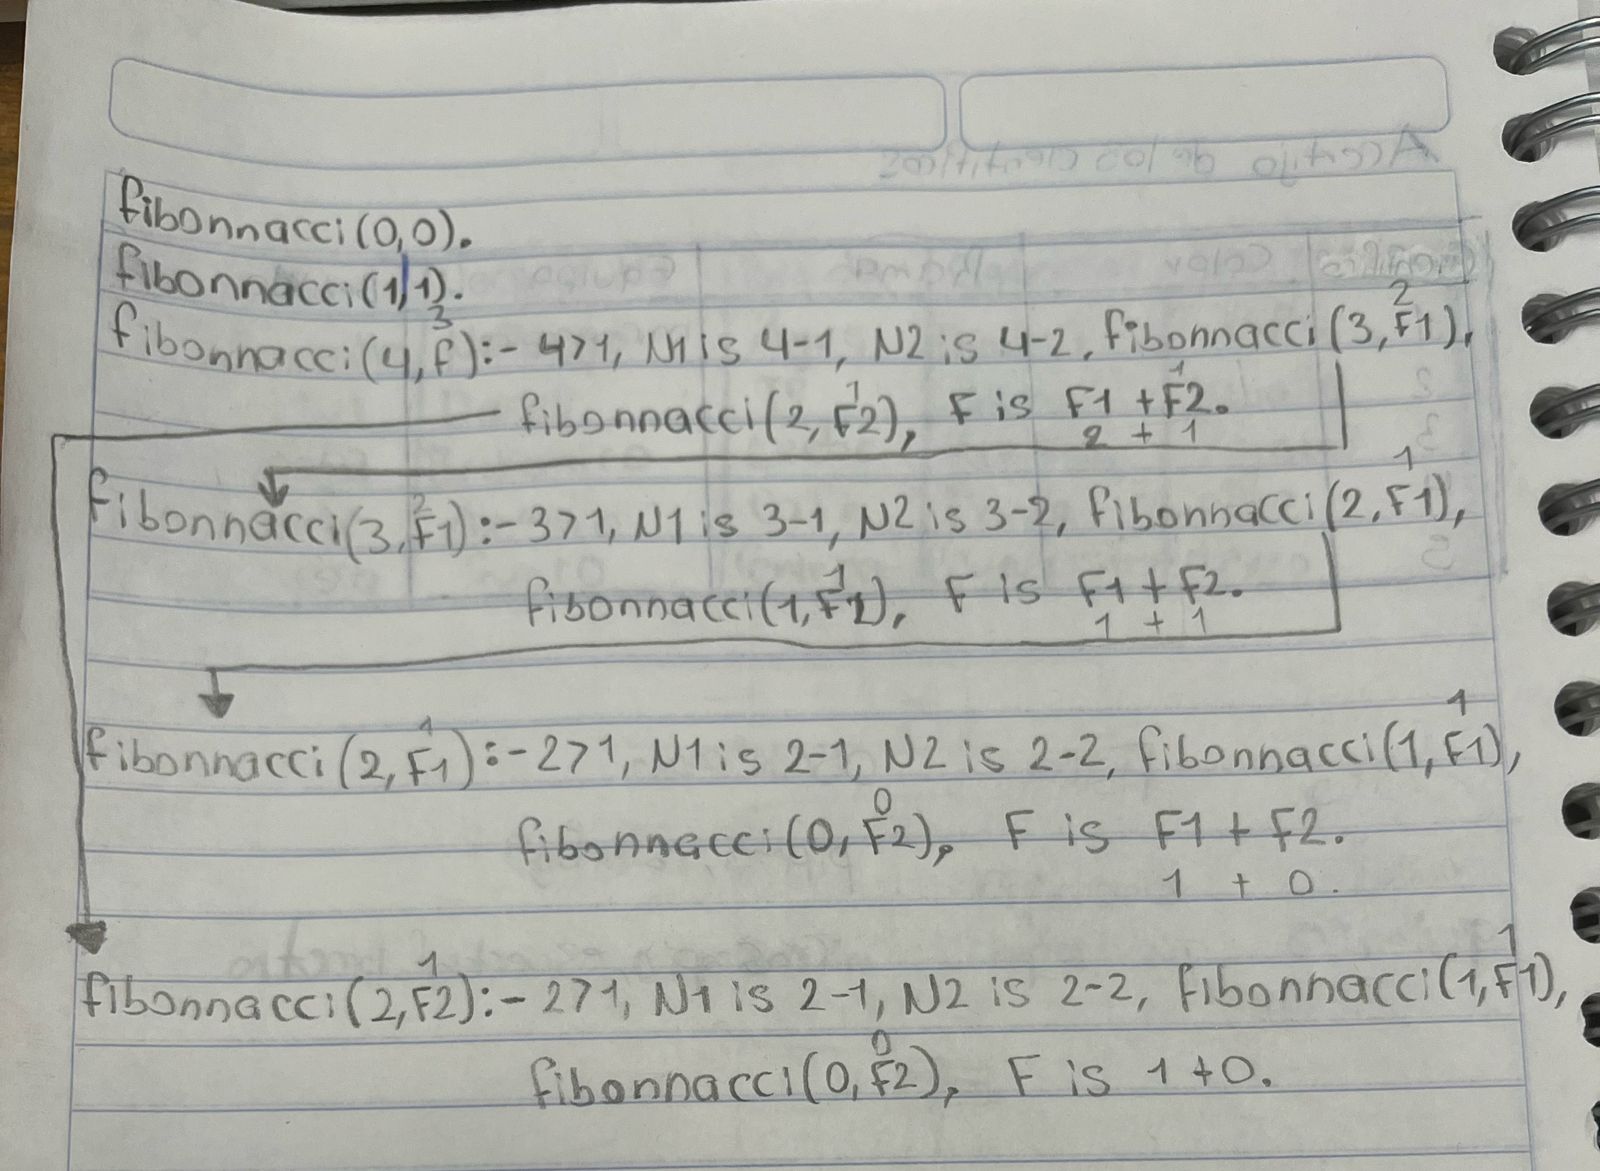 fibonnacci(0,0).
fibonnacci(1,1).
3 2
fibonnacci(4,f):- 4>1, N1 is 4-1, N2 is 4-2, fibonnacci(3,F1),
1 1
fibonnacci(2,F2), F is F1 + F2.
2 + 1
2 1
fibonnacci(3,F1):- 3>1, N1 is 3-1, N2 is 3-2, fibonnacci(2,F1),
1
fibonnacci(1,F2), F is F1 + F2.
1 + 1
1 1
fibonnacci(2,F1):- 2>1, N1 is 2-1, N2 is 2-2, fibonnacci(1,F1),
0
fibonnacci(0,F2), F is F1 + F2.
1 + 0.
1 1
fibonnacci(2,F2):- 2>1, N1 is 2-1, N2 is 2-2, fibonnacci(1,F1),
0
fibonnacci(0,F2), F is 1+0.